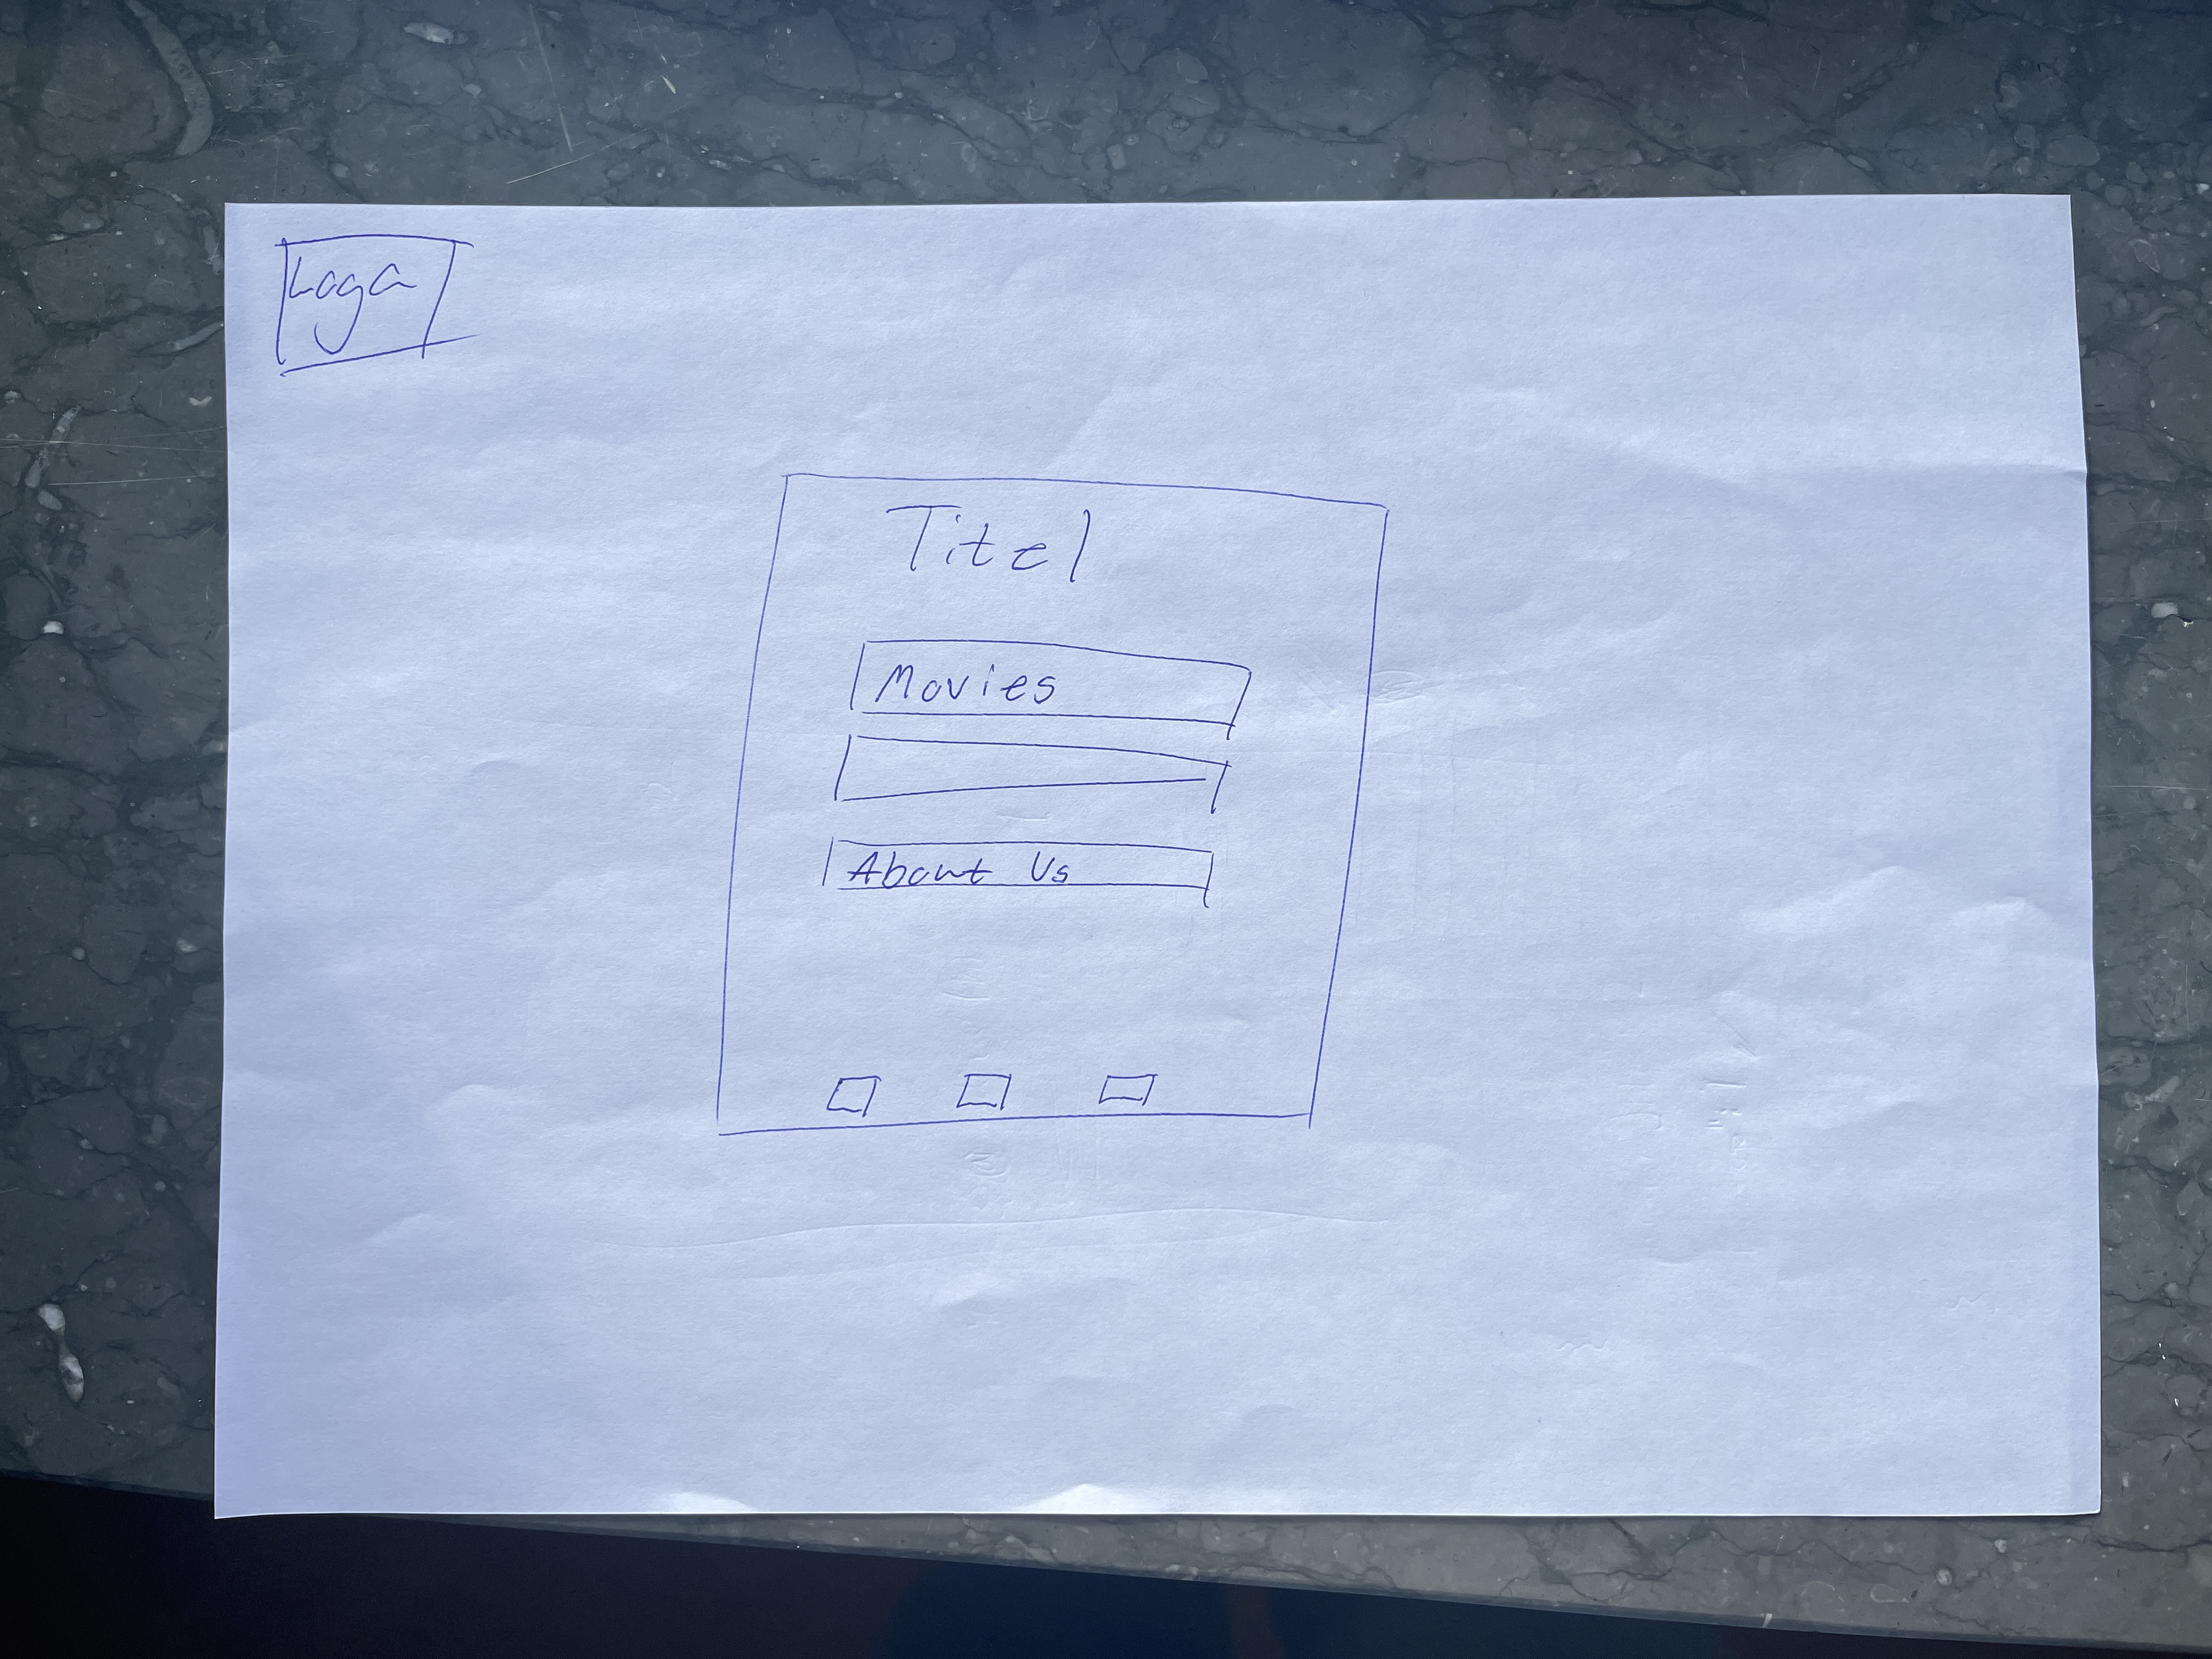 Logo
Titel
Movies
About Us